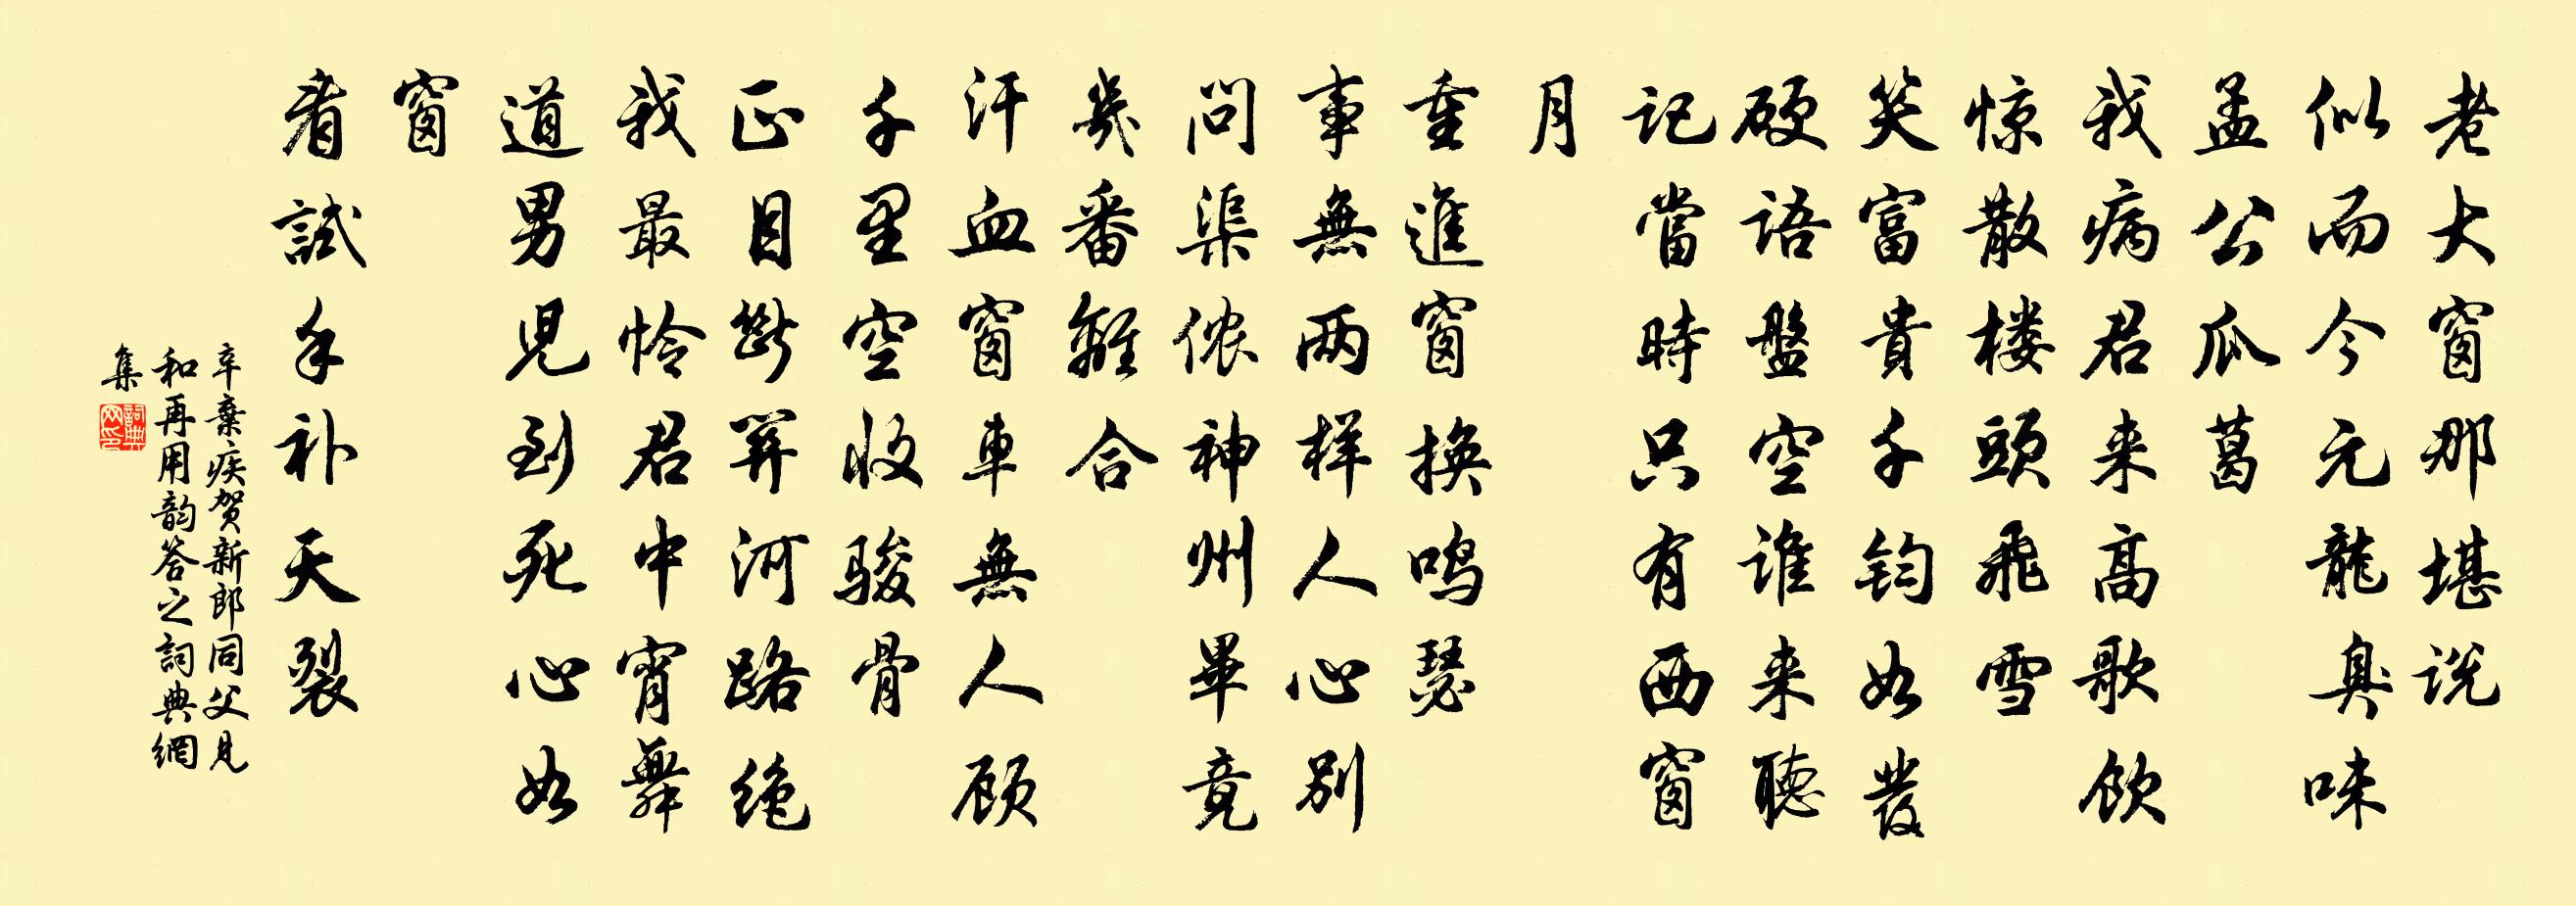 老大窗那堪说
似而今元龍臭味
孟公瓜葛
我病君来高歌飲
惊散楼頭飛雪
笑富貴千钧如發
硬語盤空谁来聽
記當時只有西窗
月
重進窗换鸣瑟
事無两样人心别
問渠侬神州畢竟
幾番離合
汗血窗車無人顾
千里空收骏骨
正目斷関河路绝
我最怜君中宵舞
道男兒到死心如
窗
看試手补天裂
辛棄疾贺新郎同父見
和再用韵答之詞典網
集
詞典网印